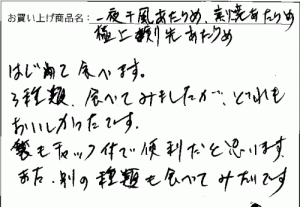 お買い上げ商品名：一夜干風あたりめ、素焼あたりめ
極上剣先あたりめ
はじめて食べます。
3種類、食べてみましたが、どれも
おいしかったです。
袋もチャック付で便利だと思います。
また、別の種類も食べてみたいです